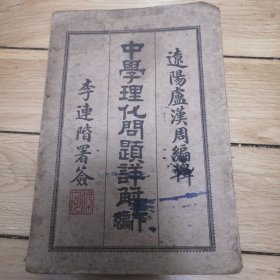 遼陽盧漢周編輯
中學理化問題詳解
編
李連階署簽